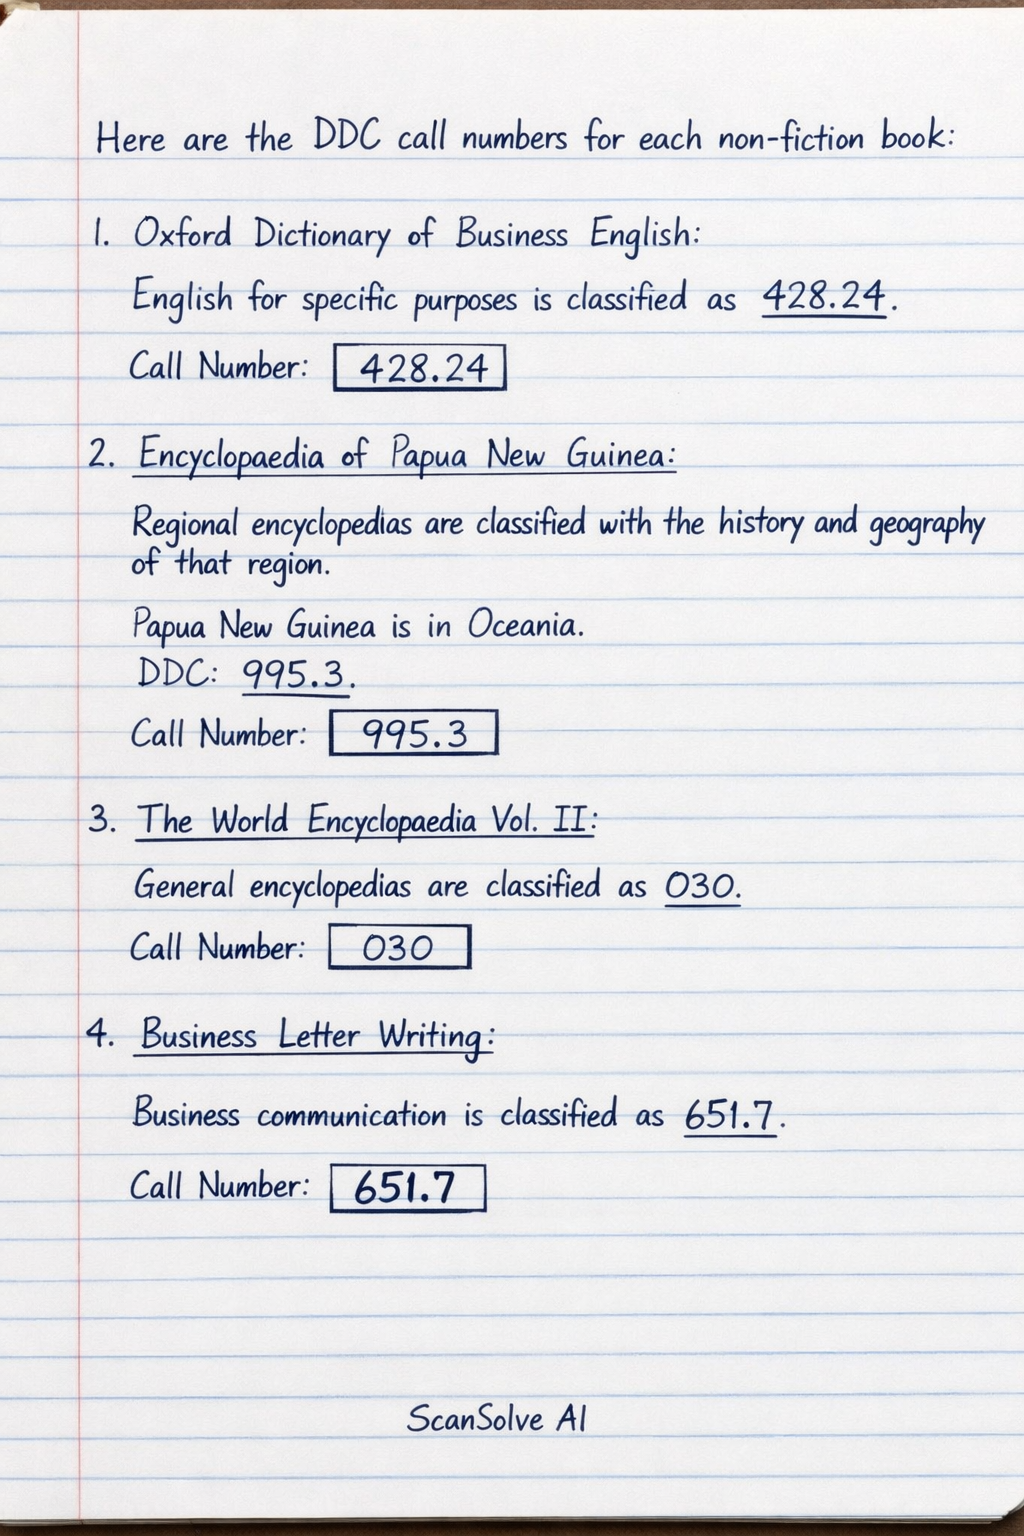 Here are the DDC call numbers for each non-fiction book:
1. Oxford Dictionary of Business English:
English for specific purposes is classified as 428.24.
Call Number: 428.24
2. Encyclopaedia of Papua New Guinea:
Regional encyclopedias are classified with the history and geography
of that region.
Papua New Guinea is in Oceania.
DDC: 995.3.
Call Number: 995.3
3. The World Encyclopaedia Vol. II:
General encyclopedias are classified as 030.
Call Number: 030
4. Business Letter Writing:
Business communication is classified as 651.7.
Call Number: 651.7
ScanSolve AI